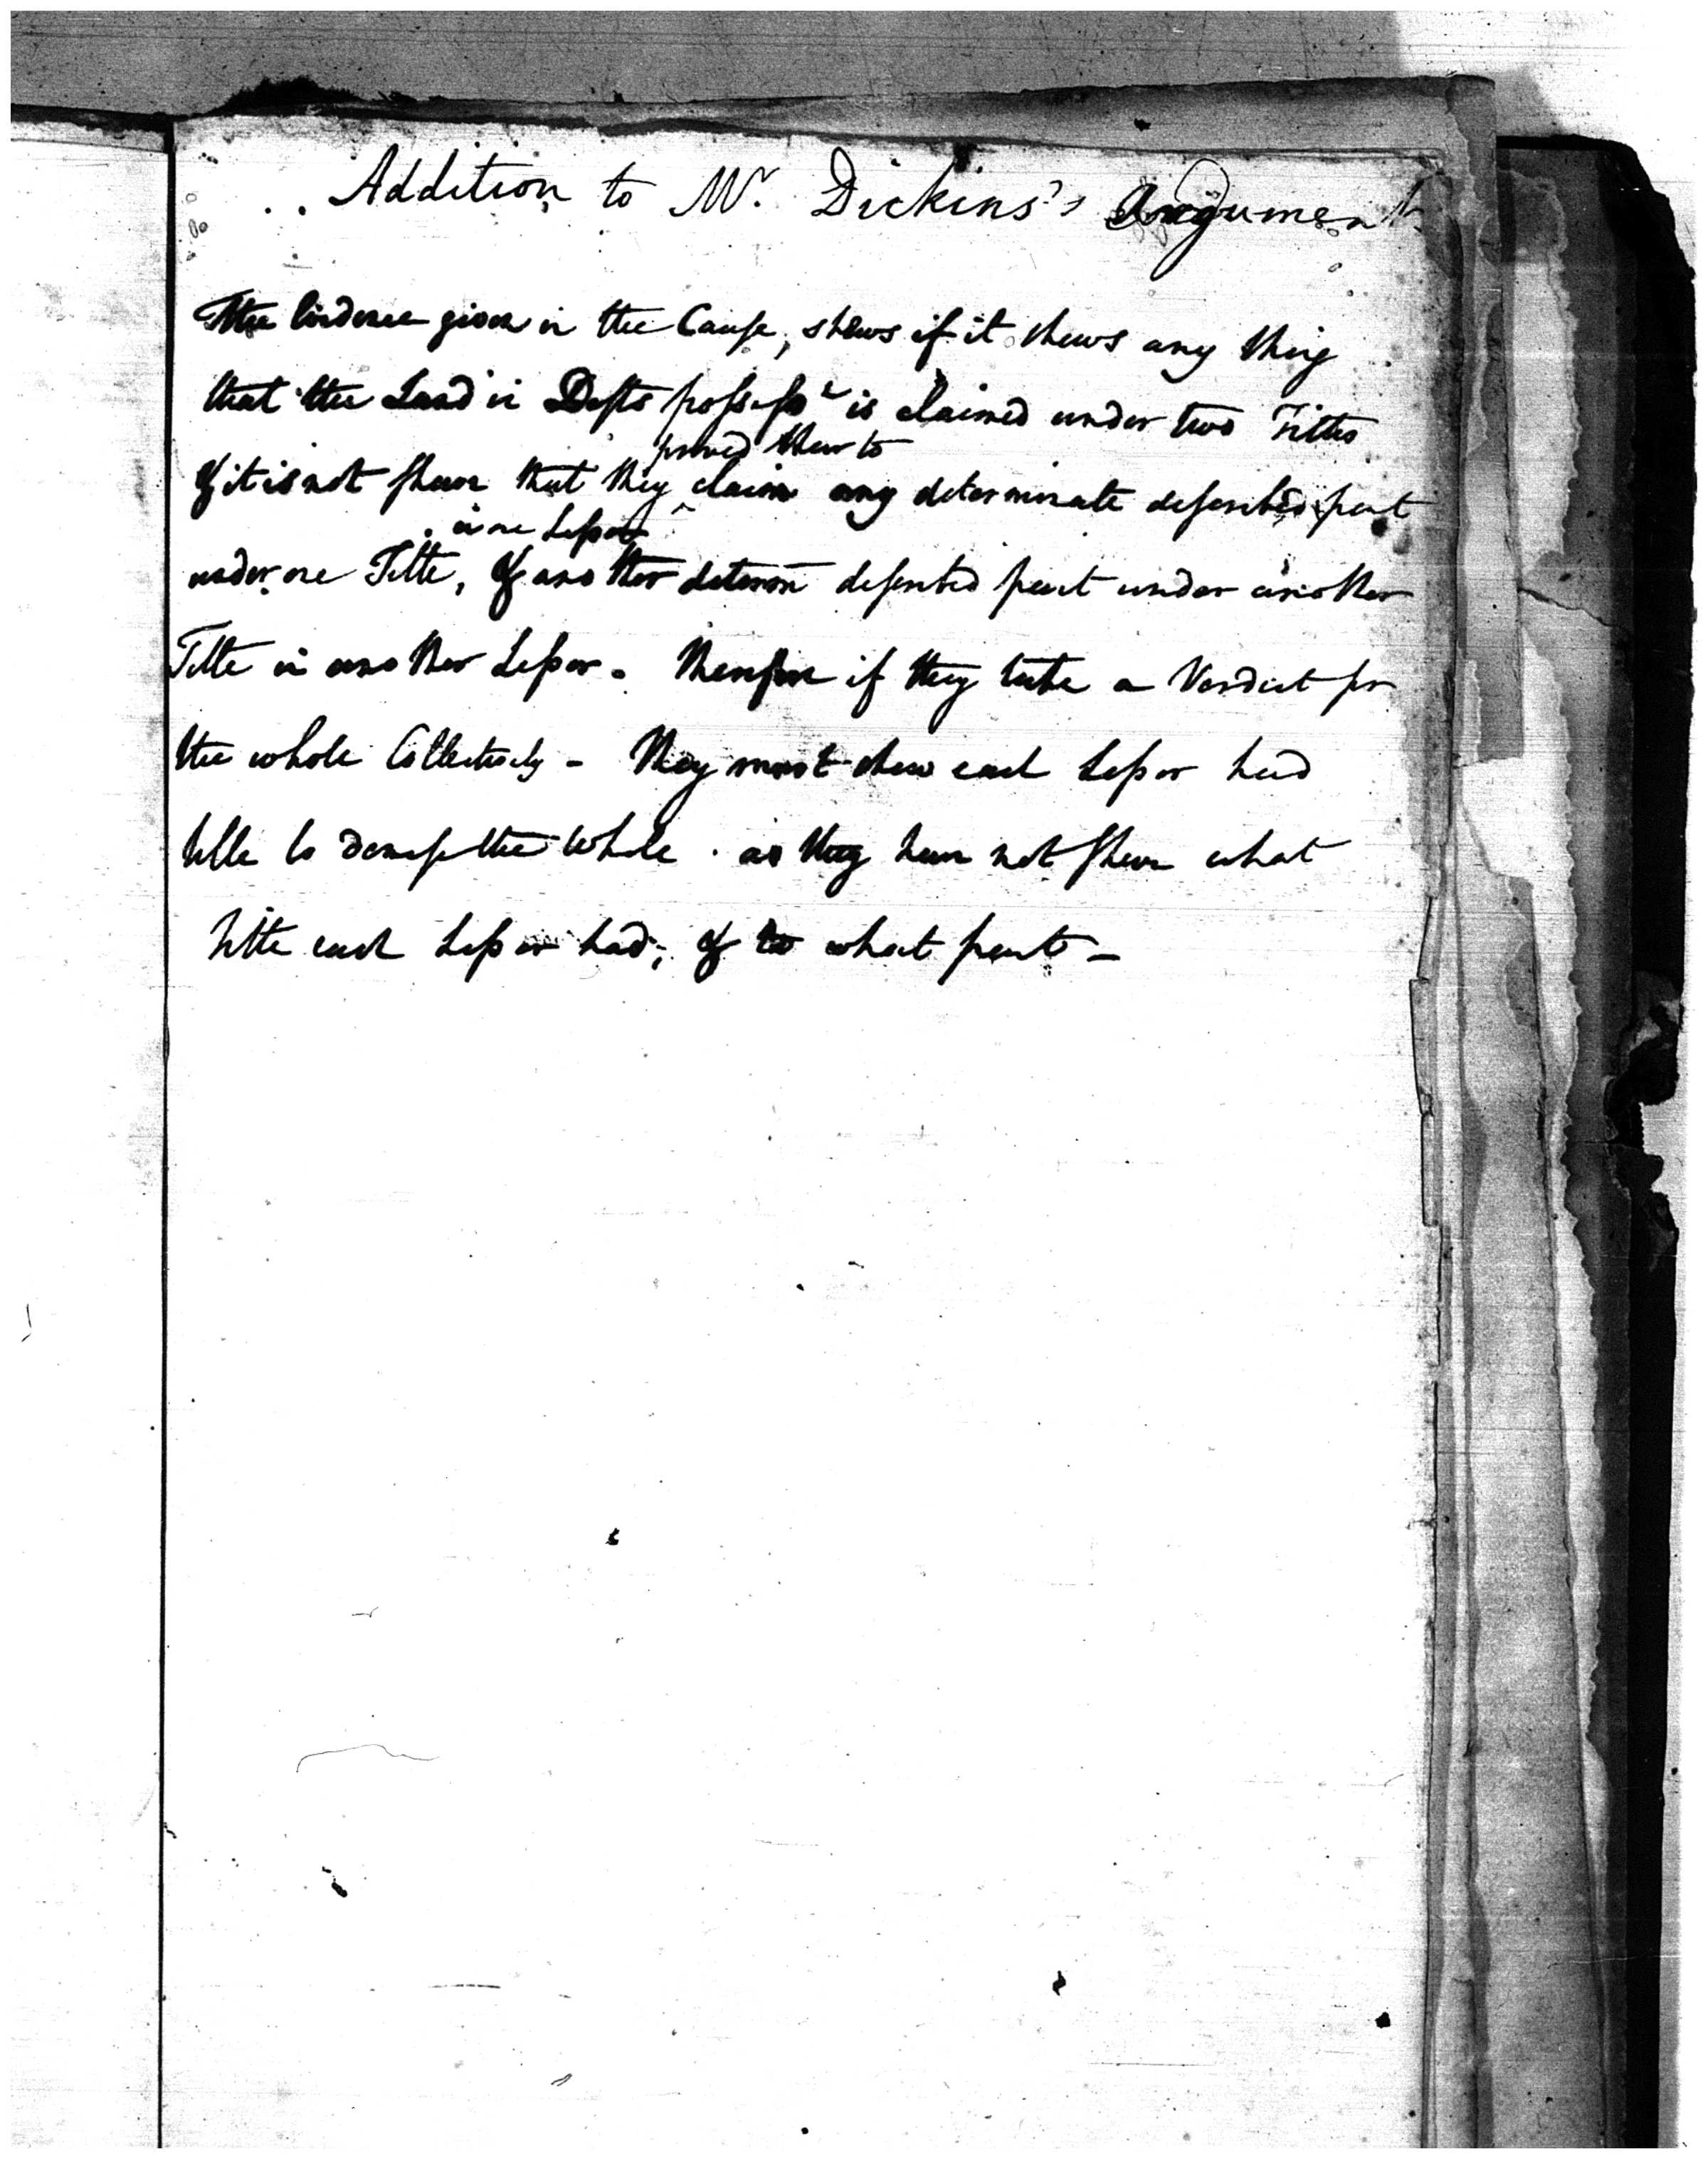 Addition to Mr. Dickins's Argument.
The Evidence given in the Cause, shews if it shews any thing
that the Land in Defts possessn is claimed under two Titles
proved their to
& it is not shewn that they claim any determinate described part
in one Lessor
under one Title, & another determ described part under another
Title in another Lessor. Therefore if they take a Verdict for
the whole Collectively - They must shew each Lessor had
title to demise the whole. as they have not shewn what
title each Lessor had, & to what part -